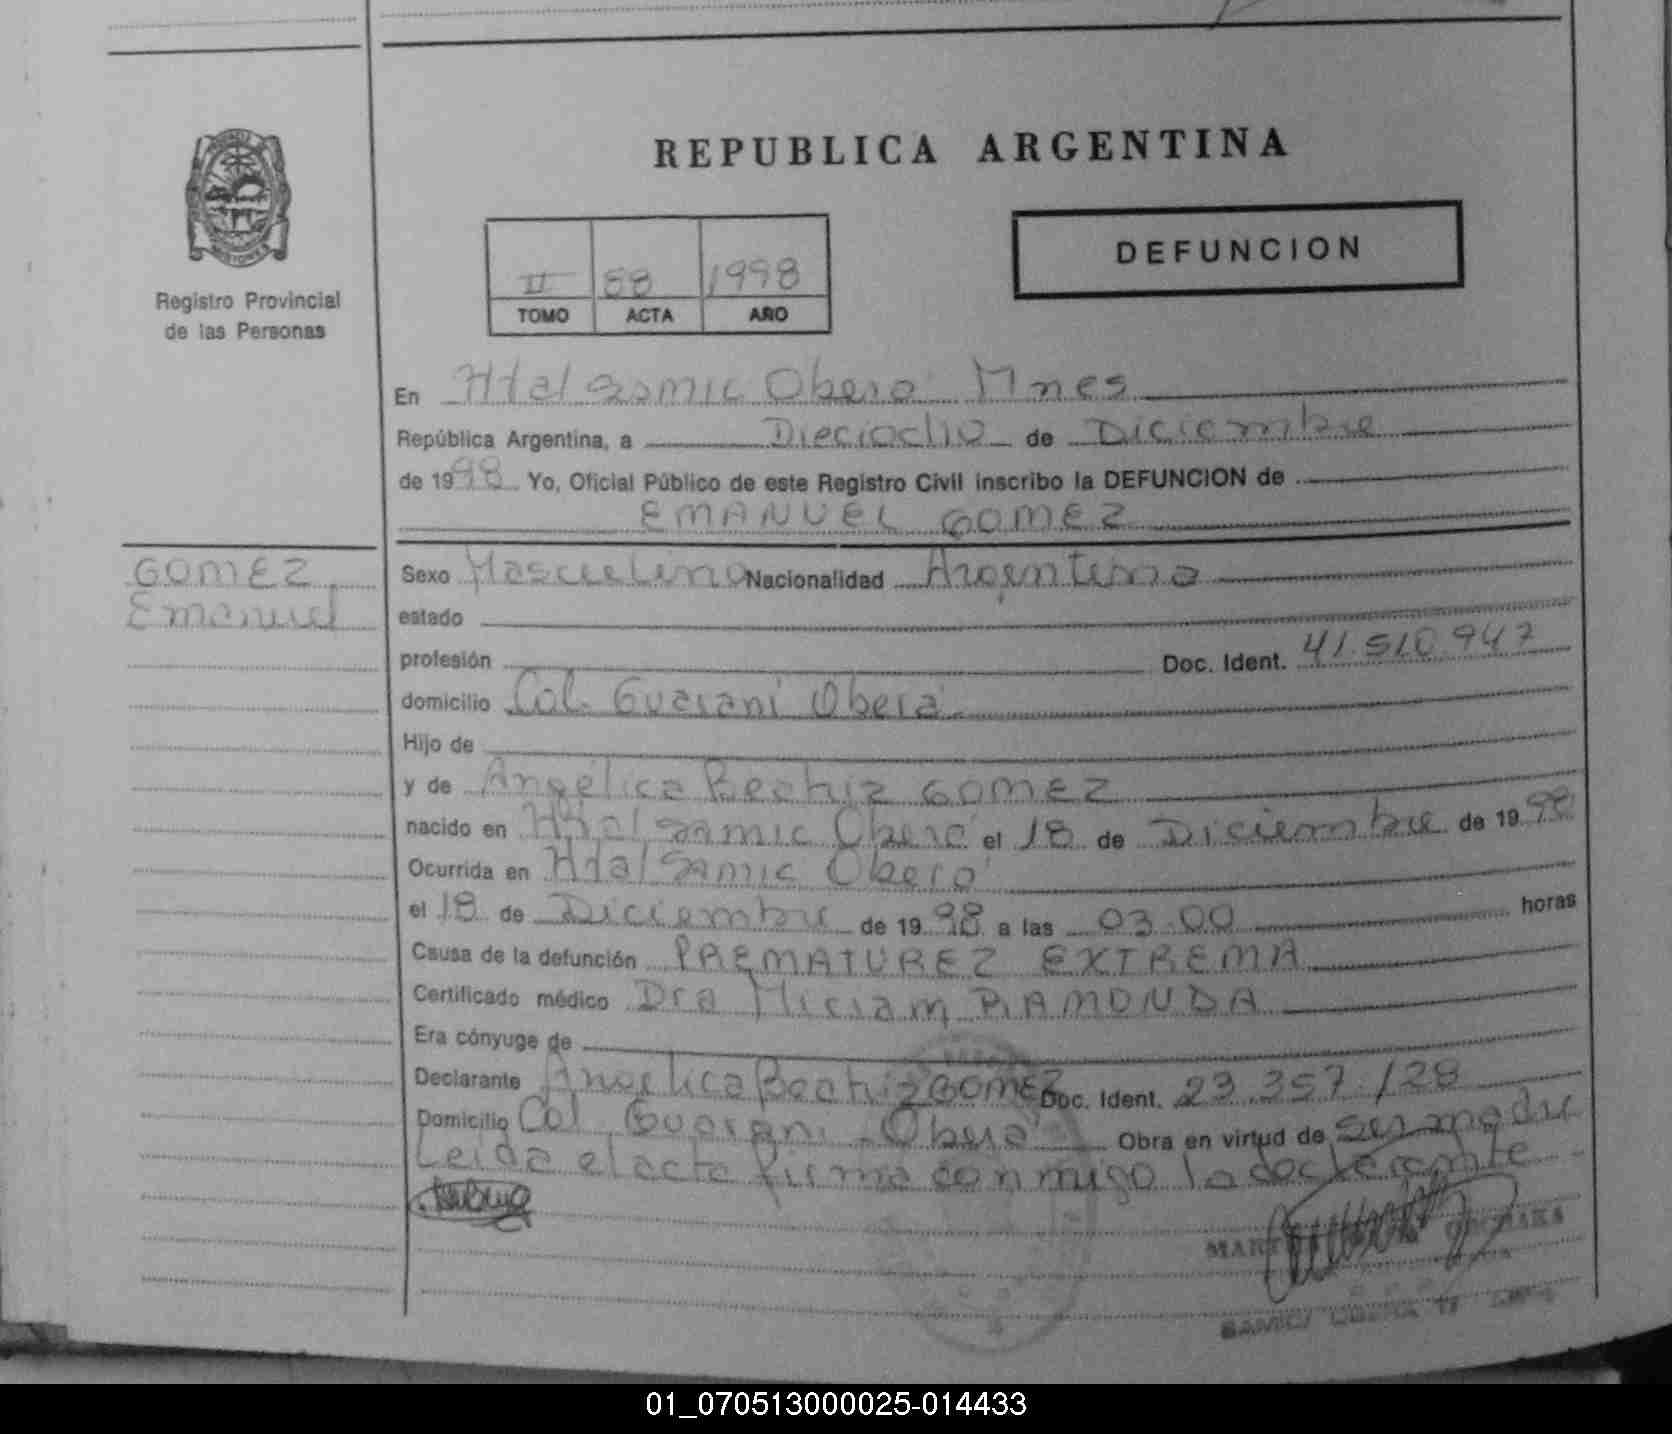 REPUBLICA ARGENTINA
DEFUNCION
II 88 1998
TOMO ACTA AÑO
Registro Provincial
de las Personas
En Htal Samic Oberá Mnes
República Argentina, a Dieciocho de Diciembre
de 1998 Yo, Oficial Público de este Registro Civil inscribo la DEFUNCION de
EMANUEL GOMEZ
GOMEZ
Emanuel
Sexo Masculino Nacionalidad Argentina
estado
profesión Doc. Ident. 41.510.947
domicilio Col. Guaraní Oberá
Hijo de
y de Angélica Beatriz GOMEZ
nacido en Htal Samic Oberá el 18 de Diciembre de 1998
Ocurrida en Htal Samic Oberá
el 18 de Diciembre de 1998 a las 03.00 horas
Causa de la defunción PREMATUREZ EXTREMA
Certificado médico Dra Miriam PIAMONDA
Era cónyuge de
Declarante Angelica Beatriz GOMEZ Doc. Ident. 23.357.128
Domicilio Col. Guarani Oberá Obra en virtud de ser madre
Leída el acta firma conmigo la declarante
SAMIC/ OBERA
01_070513000025-014433